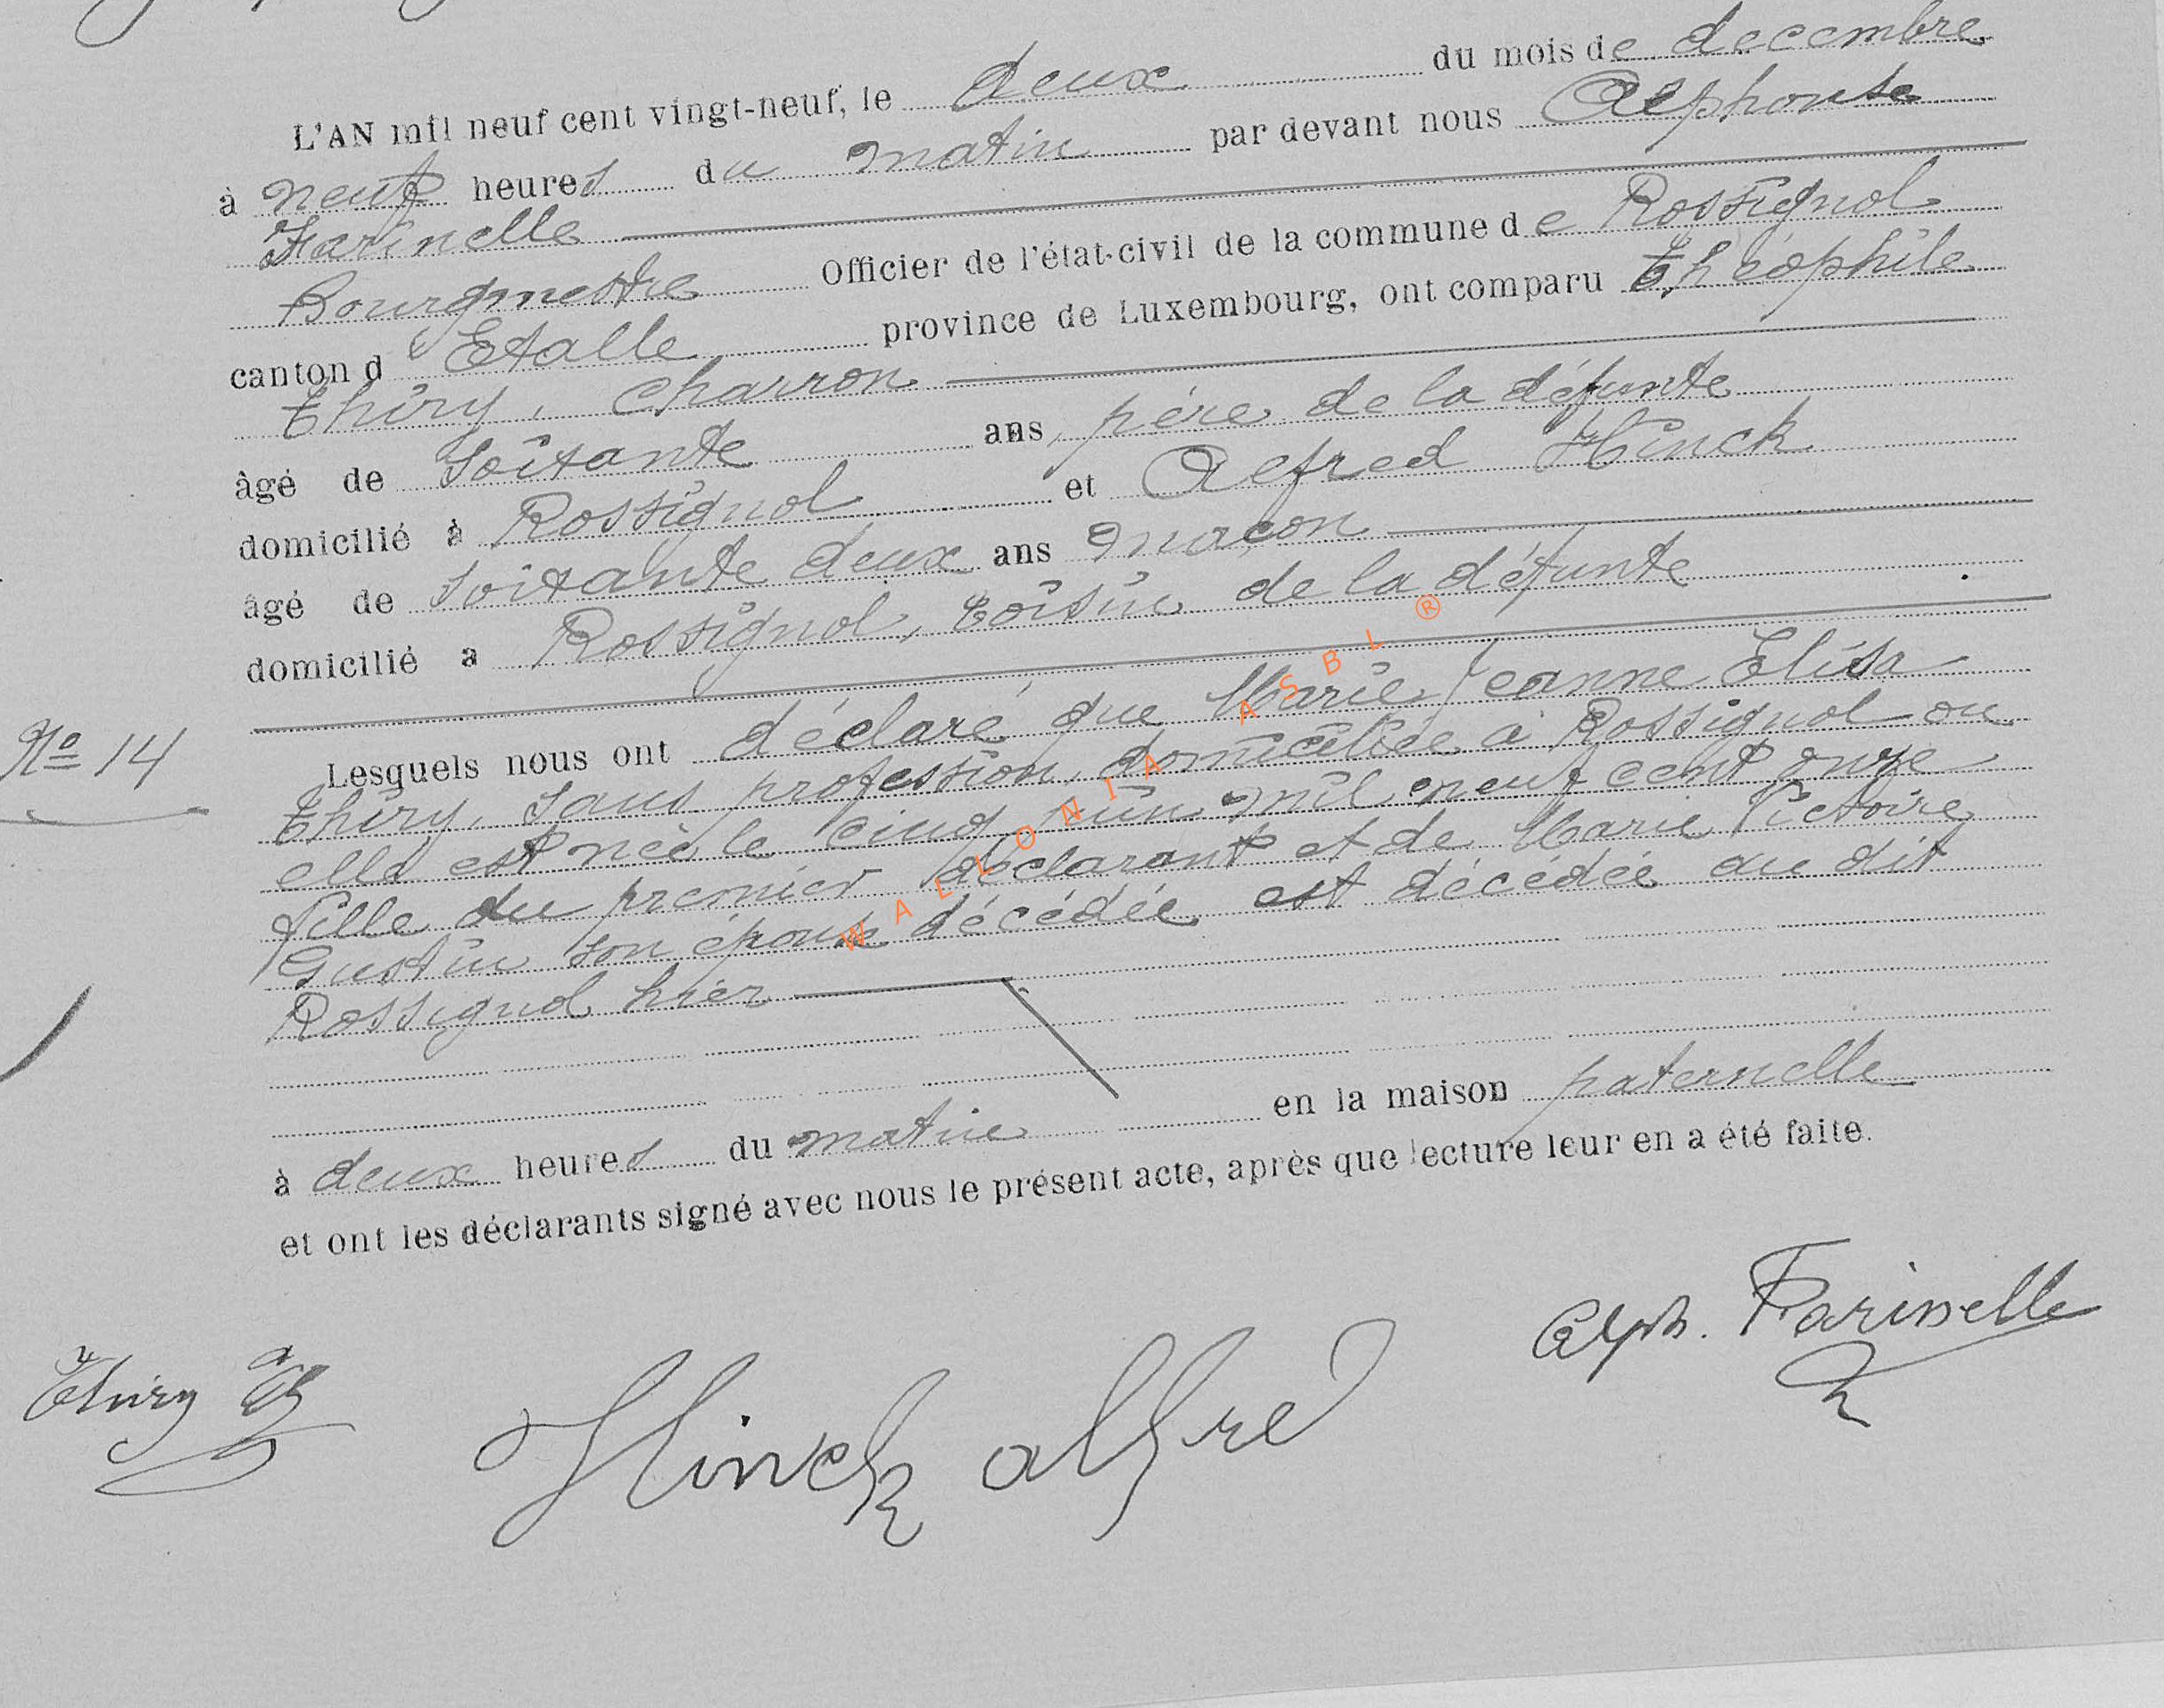 L'AN mil neuf cent vingt-neuf, le deux du mois de decembre
à neuf heures du matin par devant nous Alphonse
Farinelle
Bourgmestre Officier de l'état-civil de la commune de Rossignol
canton d'Etalle province de Luxembourg, ont comparu Théophile
Thiry, Charron
âgé de soixante ans, père de la défunte
domicilié à Rossignol et Alfred Hinck
âgé de soixante deux ans maçon
domicilié a Rossignol, voisin de la défunte
Nº 14
Lesquels nous ont déclaré que Marie Jeanne Elisa
Thiry, sans profession, domiciliée à Rossignol ou
elle est née le cinq juin mil neuf cent onze
fille du premier déclarant et de Marie Victoire
Gustin son épouse décédée est décédée au dit
Rossignol hier
à deux heures du matin en la maison paternelle
et ont les déclarants signé avec nous le présent acte, après que lecture leur en a été faite.
Alph. Farinelle
Thiry Th
Hinck alfred
WALLONIA ASBL ®